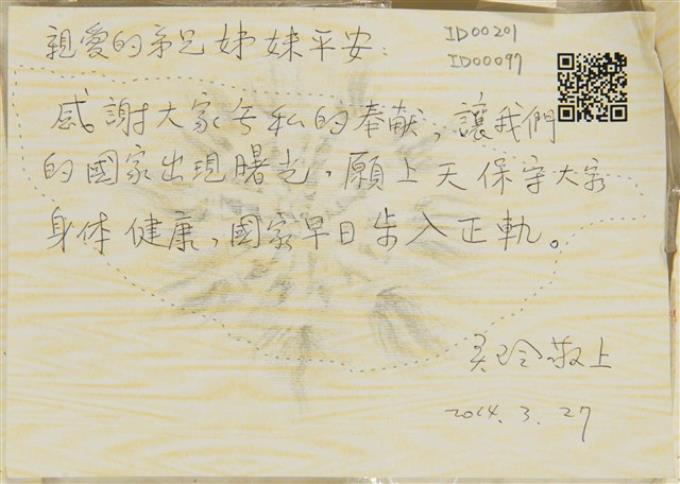 親愛的弟兄姊妹平安:
ID00201
ID00097
感謝大家無私的奉献,讓我們
的國家出現曙光,願上天保守大家
身体健康,國家早日步入正軌。
玲敬上
2014.3.27